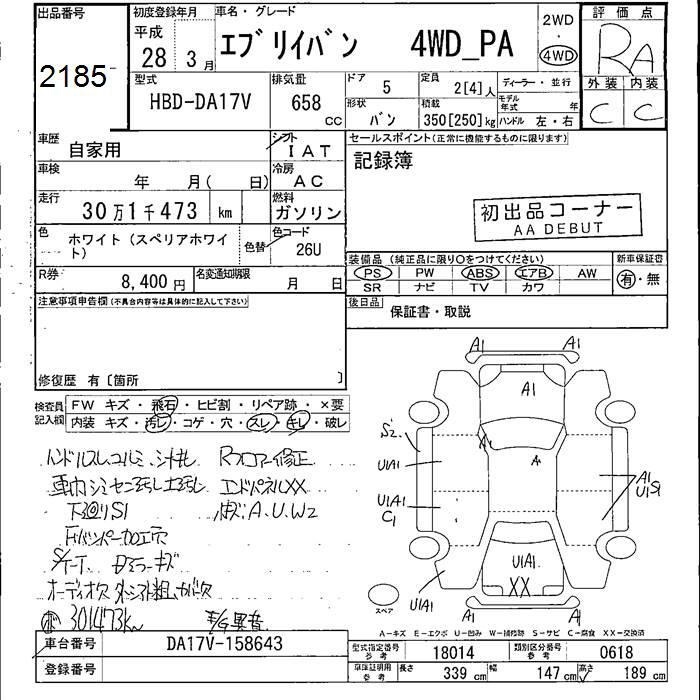 出品番号
2185
初度登録年月
平成
28年 3月
車名・グレード
エブリイバン 4WD_PA
2WD
4WD
評価点
RA
外装 内装
C C
型式
HBD-DA17V
排気量
658 cc
ドア
5
形状
バン
定員
2[4]人
積載
350[250]kg
ディーラー・並行
モデル年式 年
ハンドル 左・右
車歴
自家用
シフト
IAT
車検
年 月( 日)
冷房
AC
走行
30万1千473 km
燃料
ガソリン
色
ホワイト(スペリアホワイト)
色替
色コード
26U
R券
8,400円
名変通知期限
月 日
セールスポイント(正常に機能するものに限ります)
記録簿
初出品コーナー
AA DEBUT
装備品(純正品に限り○をつけてください)
PS PW ABS エアB AW
SR ナビ TV カワ
新車保証書
有・無
後日品
保証書・取説
注意事項申告欄(不具合内容等は具体的に記入して下さい)
修復歴 有〔箇所 〕
検査員記入欄
FW キズ・飛石・ヒビ割・リペア跡・×要
内装 キズ・汚レ・コゲ・穴・スレ・キレ・破レ
Rフロアー修正
エンドパネルXX
A.U.W2
下廻りS1
301473km
E/G異音
A1 A1
A1
S2
A1
A
U1A1
A1
U1S1
U1A1
C1
U1A1
XX
U1A1
A1 A1
スペア
A-キズ E-エクボ U-凹み W-補修跡 S-サビ C-腐食 XX-交換済
車台番号
DA17V-158643
登録番号
型式指定番号
参考
18014
類別区分番号
参考
0618
車庫証明用
参考
長さ 339 cm 幅 147 cm 高さ 189 cm